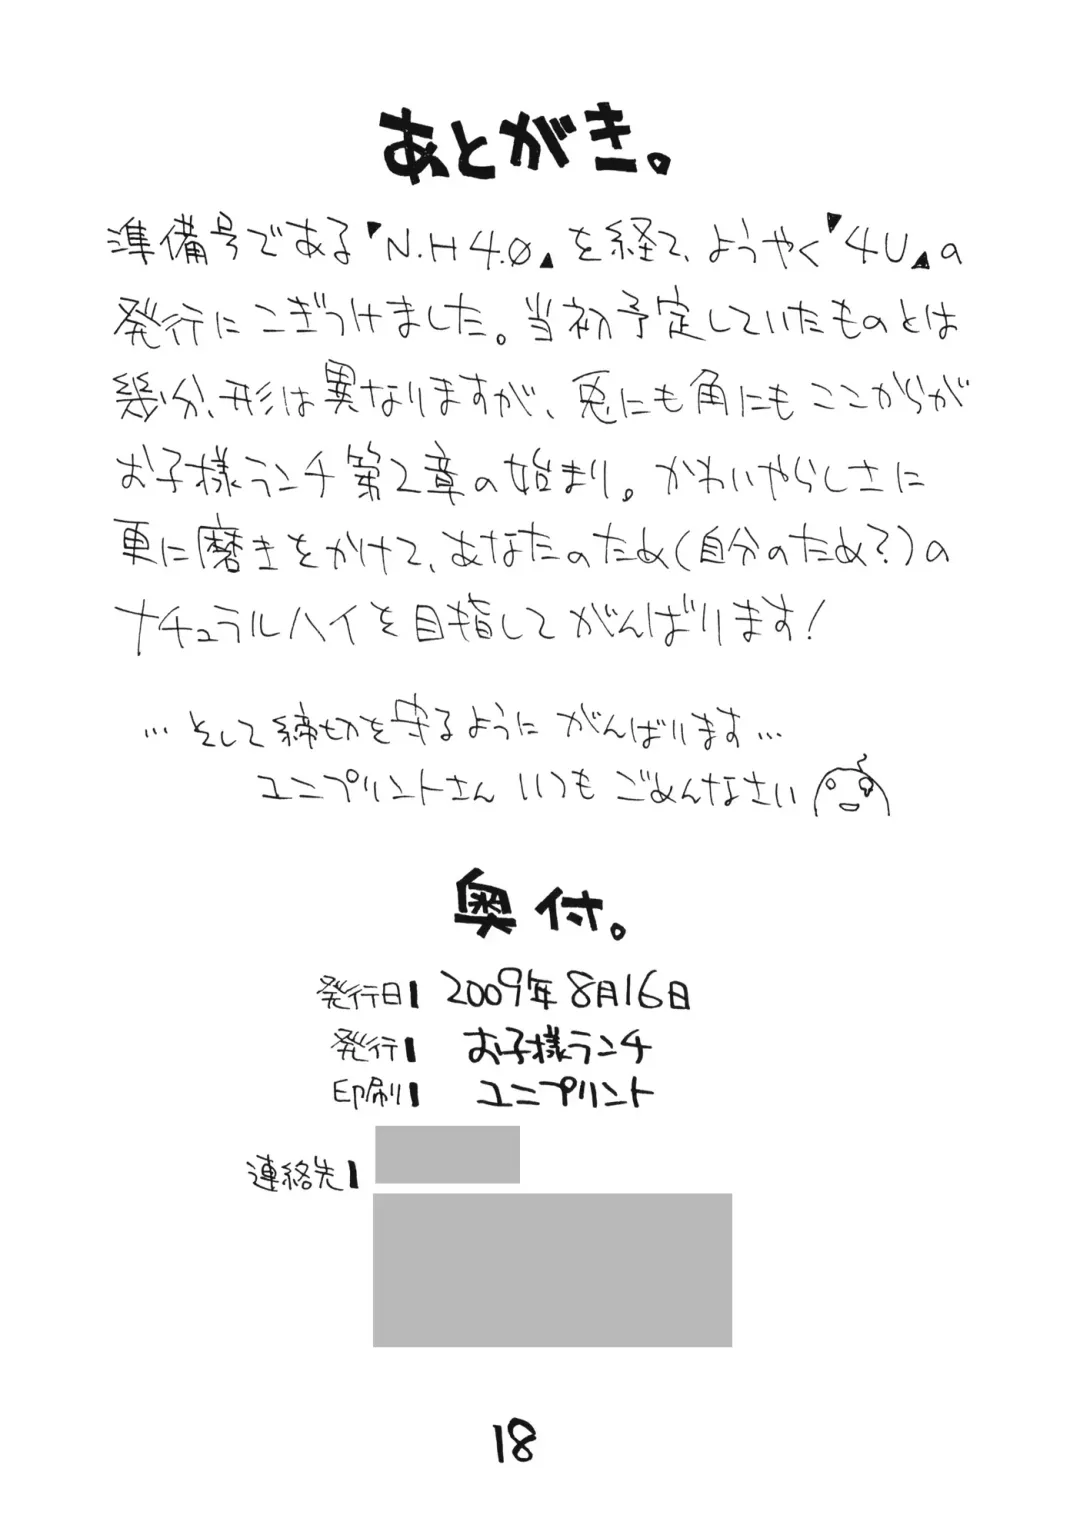 あとがき。
準備号である「N.H4.0」を経て、ようやく「4U」の
発行にこぎつけました。当初予定していたものとは
幾分、形は異なりますが、兎にも角にもここからが
お子様ランチ第2章の始まり。かわいやらしさに
更に磨きをかけて、あなたのため(自分のため?)の
ナチュラルハイを目指してがんばります!
…そして締切を守るようにがんばります…
ユニプリントさんいつもごめんなさい
奥付。
発行日| 2009年8月16日
発行| お子様ランチ
印刷| ユニプリント
連絡先|
18